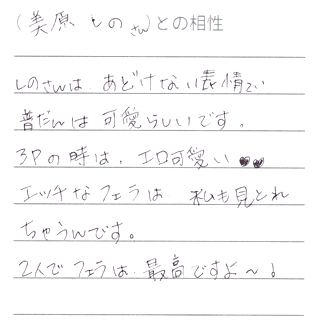 (美原 しのさん)との相性
しのさんは、あどけない表情で
普だんは可愛らしいです。
3Pの時は、エロ可愛い♥♥
エッチなフェラは、私も見とれ
ちゃうんです。
2人でフェラは、最高ですよ〜!